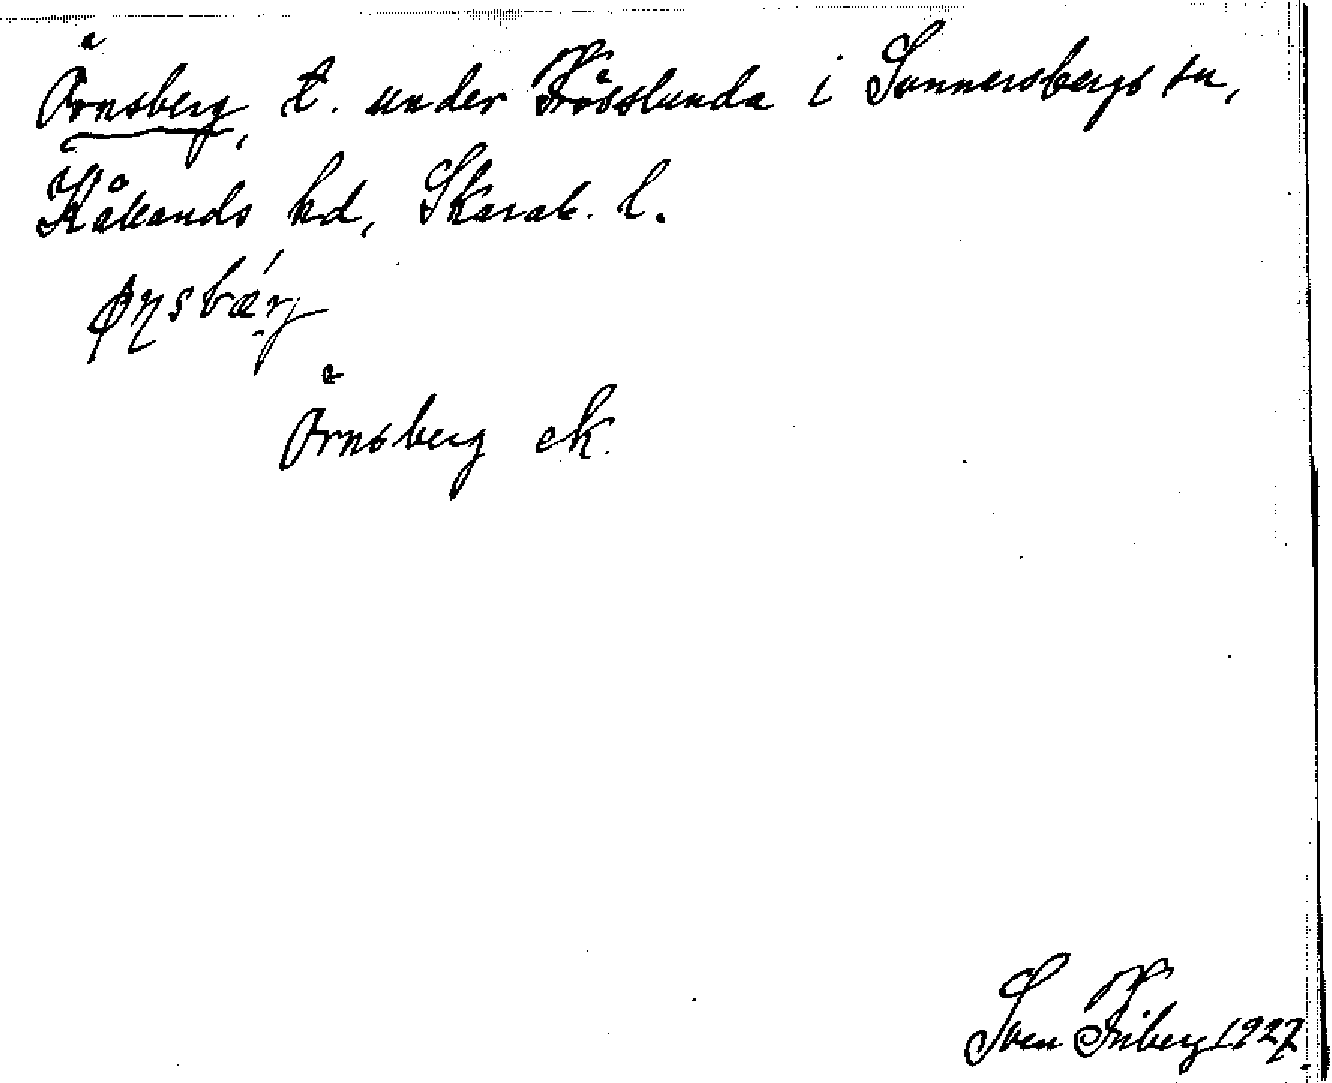 Örnsberg, t. under Frösslunda i Sunnersbergs sn,
Kålands hd, Skarab. l.
Örnsberg ek.
Sven Friberg 1927